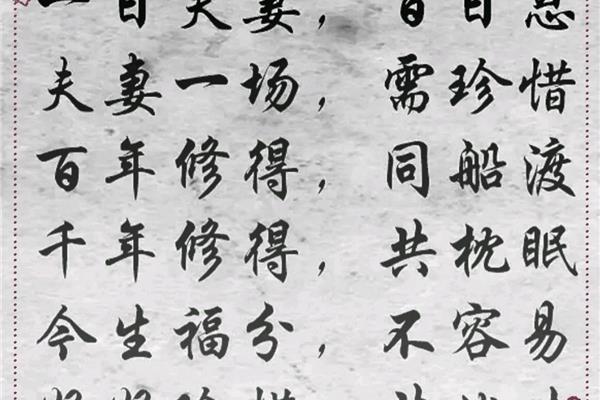 一日夫妻，百日恩
夫妻一场，需珍惜
百年修得，同船渡
千年修得，共枕眠
今生福分，不容易
好好珍惜，